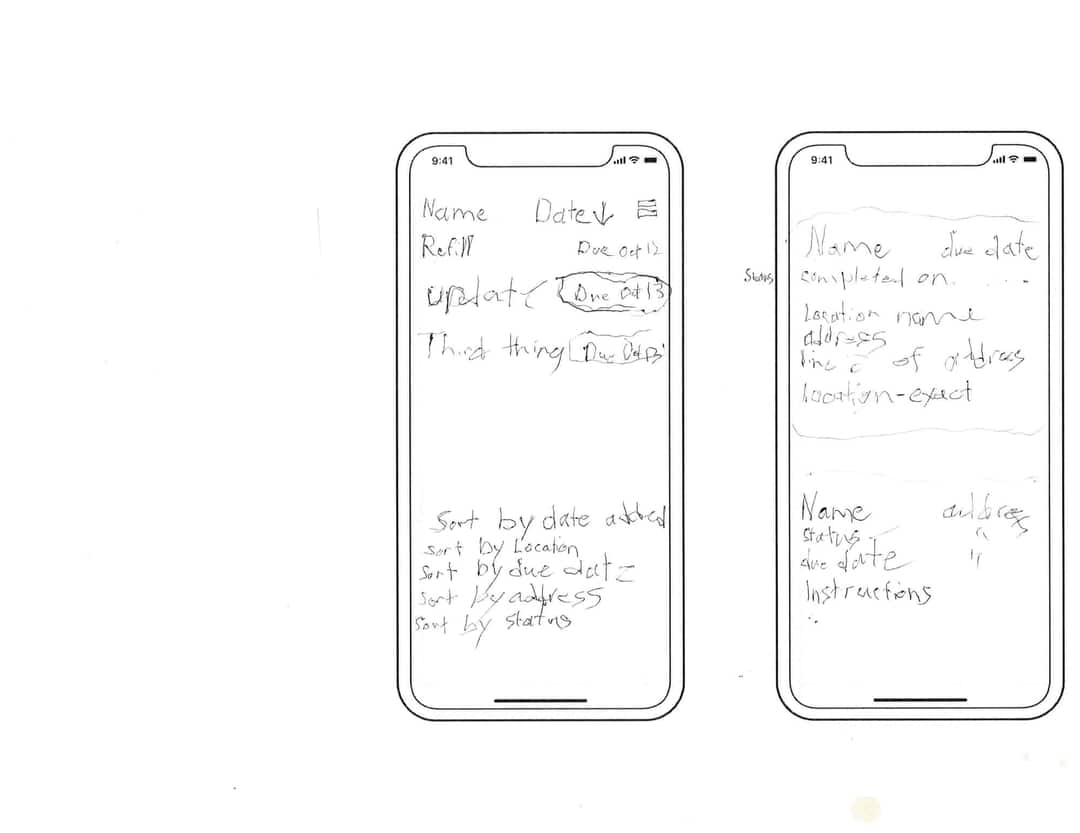 9:41
Name Date↓
Refill Due Oct 12
update Due Oct 13
Third thing Due Oct 13
Sort by date added
sort by Location
Sort by due date
Sort by address
Sort by status
9:41
Name due date
Status completed on. . . .
Location name
address
line 2 of address
Location-exact
Name address
status "
due date "
Instructions